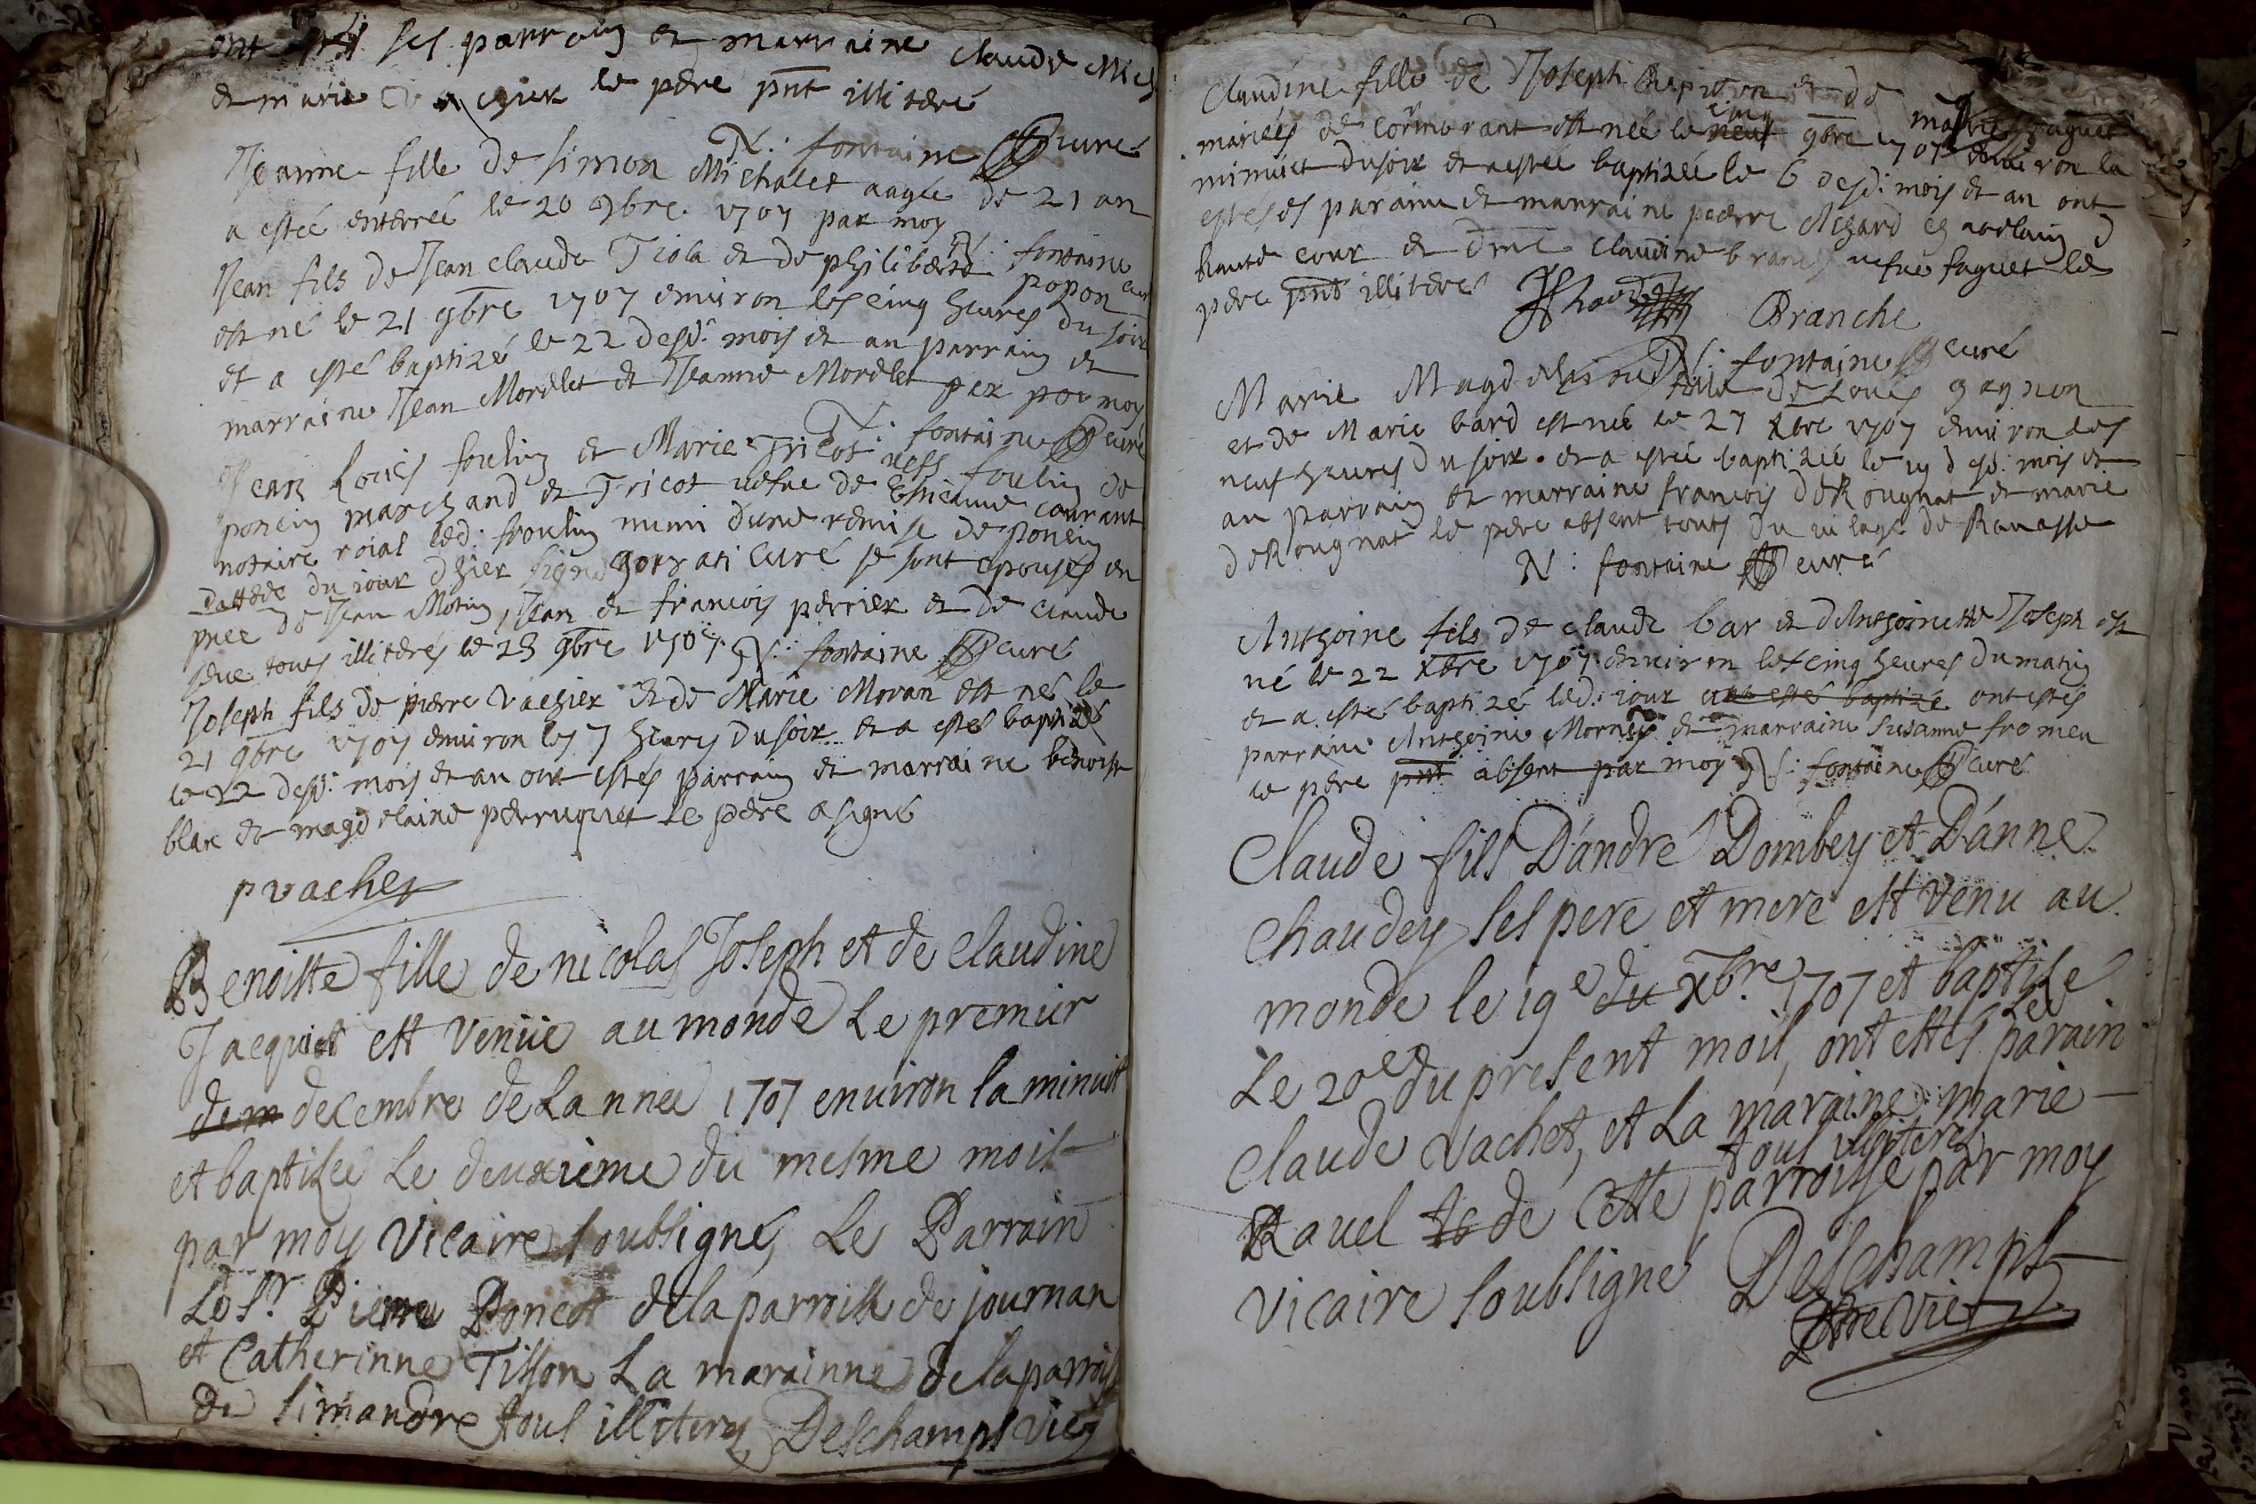 ont esté ses parrain et marraine Claude Mich
et marie vachier le père pnt illiteré
N: fontaine curé
Jeanne fille de Simon Michalet aagée de 21 an
a estée enterrée le 20 9bre 1707 par moy
N: fontaine curé
Jean fils de Jean claude Tiola et de philiberte popon
est né le 21 9bre 1707 environ les cinq heures du soir
et a esté baptizé le 22 desd: mois et an parrain et
marraine Jean Morelet et Jeanne Morelet par moy
N: fontaine curé
Jean Louis foulin et Marie Tricot ueff foulin de
poncin marchand et Tricot uefue de Estienne courant
notaire roial led: foulin muni dune remise de poncin
dattée du iour dhier signé gorrati curé se sont epousés en
pnce de Jean Motin, Jean et francois perrier et de claude
seue touts illiterés le 23 9bre 1707 N: fontaine curé
Joseph fils de pierre Vachier et de Marie Moran est né le
21 9bre 1707 environ les 7 heures du soir et a estés baptizés
le 22 desd: mois et an ont estés parrain et marraine benoist
blanc et magdelaine perruquet le père a signé
p vacher
Benoitte fille de nicolas Joseph et de Claudine
Jacquiet est Venüe au monde le premier
dem decembre de Lannee 1707 environ la minuit
et baptisée Le deuxieme du mesme mois
par moy Vicaire soubsigné, Le Parrain
Le Sr. Pierre Poncet de la parroisse de journan
et Catherinne Tisson La marainne de la parroiss
de simandre tous illiteres Deschamps vic
Claudine fille de Joseph Chapiron et de marie faguet
mariés de cormorant est née le neuf cinq 9bre 1707 environ la
minuict du soir et a estée baptizée le 6 desd: mois et an ont
estés ses parain et marraine pierre Mezard chatelain d
haute cour et dme claudine branche uefue faguet le
père pnt illiteré
Branche
N: fontaine curé
Marie Magdelaine fille de Louis gagnon
et de Marie bard est née le 27 xbre 1707 environ les
neuf heures du soir et a estée baptizée le desd: mois et
an parrain et marraine francois deRougnat et marie
deRougnat le père absent touts du uilage de Rauasse
N: fontaine curé
Anthoine fils de claude bar et dAnthoinette Joseph est
né le 22 xbre 1707 environ les cinq heures du matin
et a estés baptizé led: iour a esté baptizé ont estés
parrain Anthoine Mornay et marraine Susanne fromen
le père pnt absent par moy N: fontaine curé
Claude fils D'andré Dombey et D'anne
Chaudey ses pere et mere est venu au
monde le 19e du xbre 1707 et baptisé
Le 20e du present mois, ont estés Le parain
Claude Vachet, et La maraine marie
tous illiteres
Ravel de de Cette parroisse par moy
Vicaire soubsigné Deschamps
pbre Vic